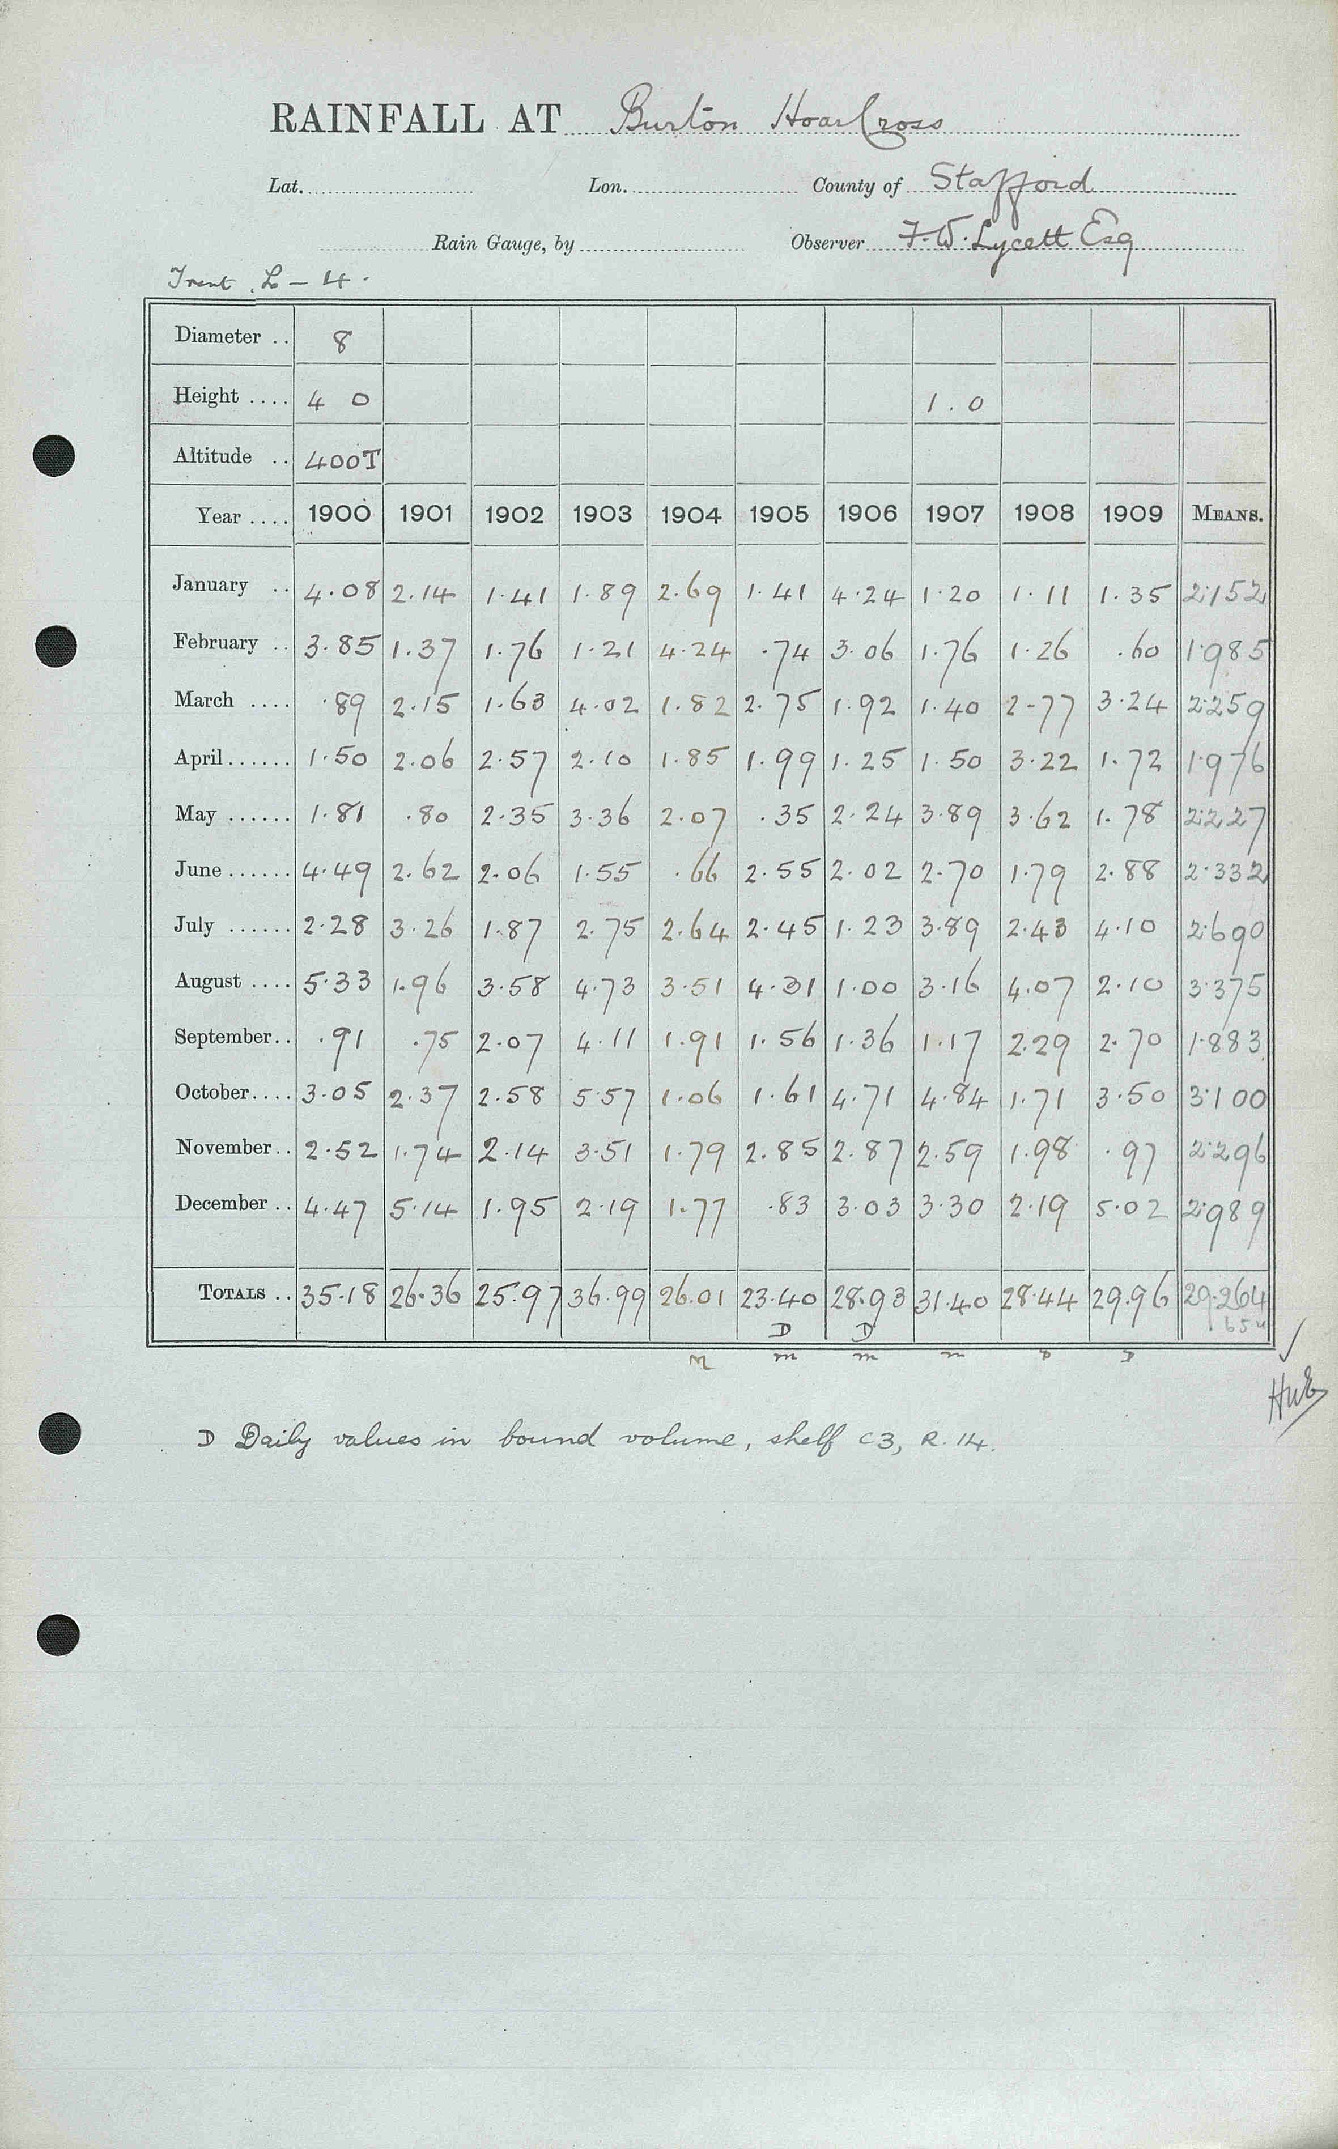 RAINFALL AT Burton Hoar Cross
Lat. Lon. County of Stafford
Rain Gauge, by Observer F.W. Lycett Esq
Trent. L - 4.
Diameter .. 8
Height .... 4 0 1.0
Altitude .. 400T
Year .... 1900 1901 1902 1903 1904 1905 1906 1907 1908 1909 MEANS.
January .. 4.08 2.14 1.41 1.89 2.69 1.41 4.24 1.20 1.11 1.35 2.152
February .. 3.85 1.37 1.76 1.21 4.24 .74 3.06 1.76 1.26 .60 1.985
March .... .89 2.15 1.63 4.02 1.82 2.75 1.92 1.40 2.77 3.24 2.259
April...... 1.50 2.06 2.57 2.10 1.85 1.99 1.25 1.50 3.22 1.72 1.976
May ...... 1.81 .80 2.35 3.36 2.07 .35 2.24 3.89 3.62 1.78 2.227
June...... 4.49 2.62 2.06 1.55 .66 2.55 2.02 2.70 1.79 2.88 2.332
July ...... 2.28 3.26 1.87 2.75 2.64 2.45 1.23 3.89 2.43 4.10 2.690
August .... 5.33 1.96 3.58 4.73 3.51 4.31 1.00 3.16 4.07 2.10 3.375
September.. .91 .75 2.07 4.11 1.91 1.56 1.36 1.17 2.29 2.70 1.883
October.... 3.05 2.37 2.58 5.57 1.06 1.61 4.71 4.84 1.71 3.50 3.100
November.. 2.52 1.74 2.14 3.51 1.79 2.85 2.87 2.59 1.98 .97 2.296
December .. 4.47 5.14 1.95 2.19 1.77 .83 3.03 3.30 2.19 5.02 2.989
TOTALS .. 35.18 26.36 25.97 36.99 26.01 23.40 28.93 31.40 28.44 29.96 29.264
D D
M m m m D D
D Daily values in bound volume, shelf C3, R. 14.